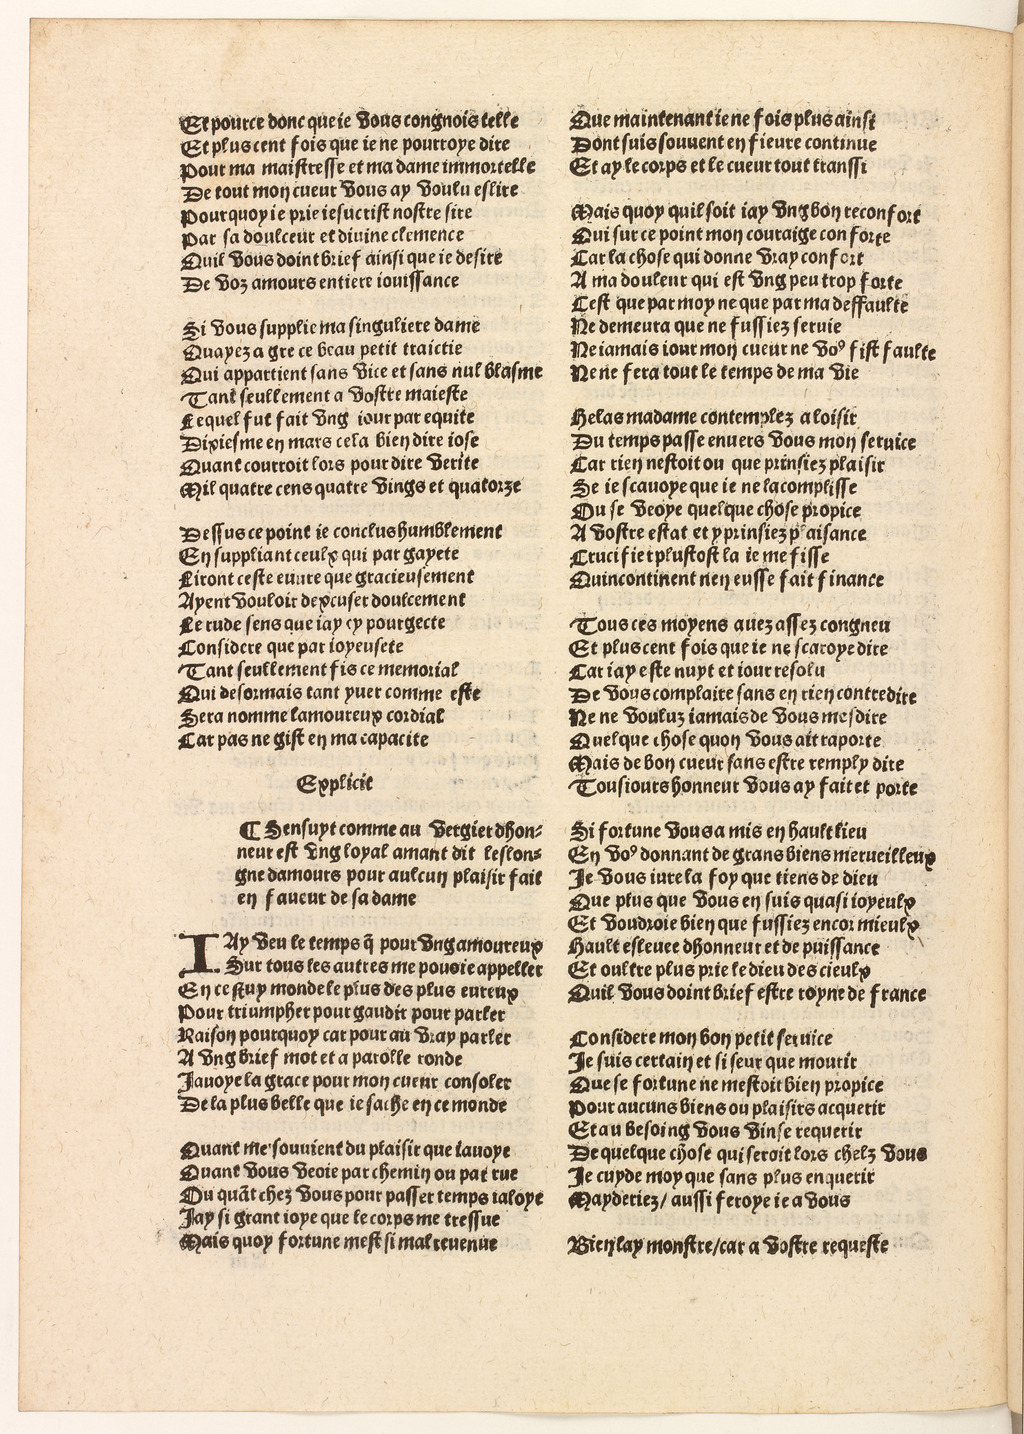 Et pource donc que ie vous congnois telle
Et plus cent fois que ie ne pourroye dire
Pour ma maistresse et ma dame immortelle
De tout mon cueur vous ay voulu eslire
Pourquoy ie prie iesucrist nostre sire
Par sa doulceur et diuine clemence
Quil vous doint brief ainsi que ie desire
De voz amours entiere iouissance
Si vous supplie ma singuliere dame
Quayez a gre ce beau petit traictie
Qui appartient sans vice et sans nul blasme
Tant seullement a vostre maieste
Lequel fut fait vng iour par equite
Dixiesme en mars cela bien dire iose
Quant courroit lors pour dire verite
Mil quatre cens quatre vings et quatorze
Dessus ce point ie conclus humblement
En suppliant ceulx qui par gayete
Liront ceste euure que gracieusement
Ayent vouloir dexcuser doulcement
Le rude sens que iay cy pourgecte
Considere que par ioyeusete
Tant seullement fis ce memorial
Qui desormais tant yuer comme este
Sera nomme lamoureux cordial
Car pas ne gist en ma capacite
Explicit
¶ Sensuyt comme au vergier dhon-
neur est vng loyal amant dit leslon-
gne damours pour aulcun plaisir fait
en faueur de sa dame
IAy veu le temps q̃ pour vng amoureux
Sur tous les autres me pouoie appeller
En cestuy monde le plus des plus eureux
Pour triumpher pour gaudir pour parler
Raison pourquoy car pour au vray parler
A vng brief mot et a parolle ronde
Jauoye la grace pour mon cueur consoler
De la plus belle que ie sache en ce monde
Quant me souuient du plaisir que iauoye
Quant vous veoie par chemin ou par rue
Ou quãt chez vous pour passer temps ialoye
Jay si grant ioye que le corps me tressue
Mais quoy fortune mest si mal reuenue
Que maintenant ie ne fois plus ainsi
Dont suis souuent en fieure continue
Et ay le corps et le cueur tout transsi
Mais quoy quil soit iay vng bon reconfort
Qui sur ce point mon couraige conforte
Car la chose qui donne vray confort
A ma douleur qui est vng peu trop forte
Cest que par moy ne que par ma deffaulte
Ne demeura que ne fussiez seruie
Ne iamais iour mon cueur ne voꝰ fist faulte
Ne ne fera tout le temps de ma vie
Helas madame contemplez a loisir
Du temps passe enuers vous mon seruice
Car rien nestoit ou que prinsiez plaisir
Se ie scauoye que ie ne lacomplisse
Ou se veoye quelque chose propice
A vostre estat et y prinsiez plaisance
Crucifie iplustost la ie me fisse
Quincontinent nen eusse fait finance
Tous ces moyens auez assez congneu
Et plus cent fois que ie ne scaroye dire
Car iay este nuyt et iour resolu
De vous complaire sans en rien contredire
Ne ne vouluz iamais de vous mesdire
Quelque chose quon vous ait raporte
Mais de bon cueur sans estre remply dire
Tousiours honneur vous ay fait et porte
Si fortune vous a mis en hault lieu
En voꝰ donnant de grans biens merueilleux
Je vous iure la foy que tiens de dieu
Que plus que vous en suis quasi ioyeulx
Et voudroie bien que fussiez encor mieulx
Hault esleuee dhonneur et de puissance
Et oultre plus prie le dieu des cieulx
Quil vous doint brief estre royne de france
Considere mon bon petit seruice
Je suis certain et si seur que mourir
Que se fortune ne mestoit bien propice
Pour aucuns biens ou plaisirs acquerir
Et au besoing vous vinse requerir
De quelque chose qui seroit lors chelz vous
Je cuyde moy que sans plus enquerir
Mayderiez/ aussi feroye ie a vous
Bien lay monstre/car a vostre requeste